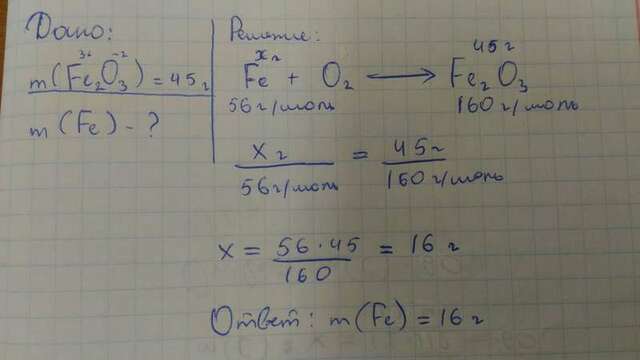 Дано:
3+ -2
m(Fe₂O₃) = 45г
m(Fe) - ?
Решение:
xг 45г
Fe + O₂ ⟶ Fe₂O₃
56г/моль 160г/моль
xг / 56г/моль = 45г / 160г/моль
x = 56·45 / 160 = 16г
Ответ: m(Fe) = 16г